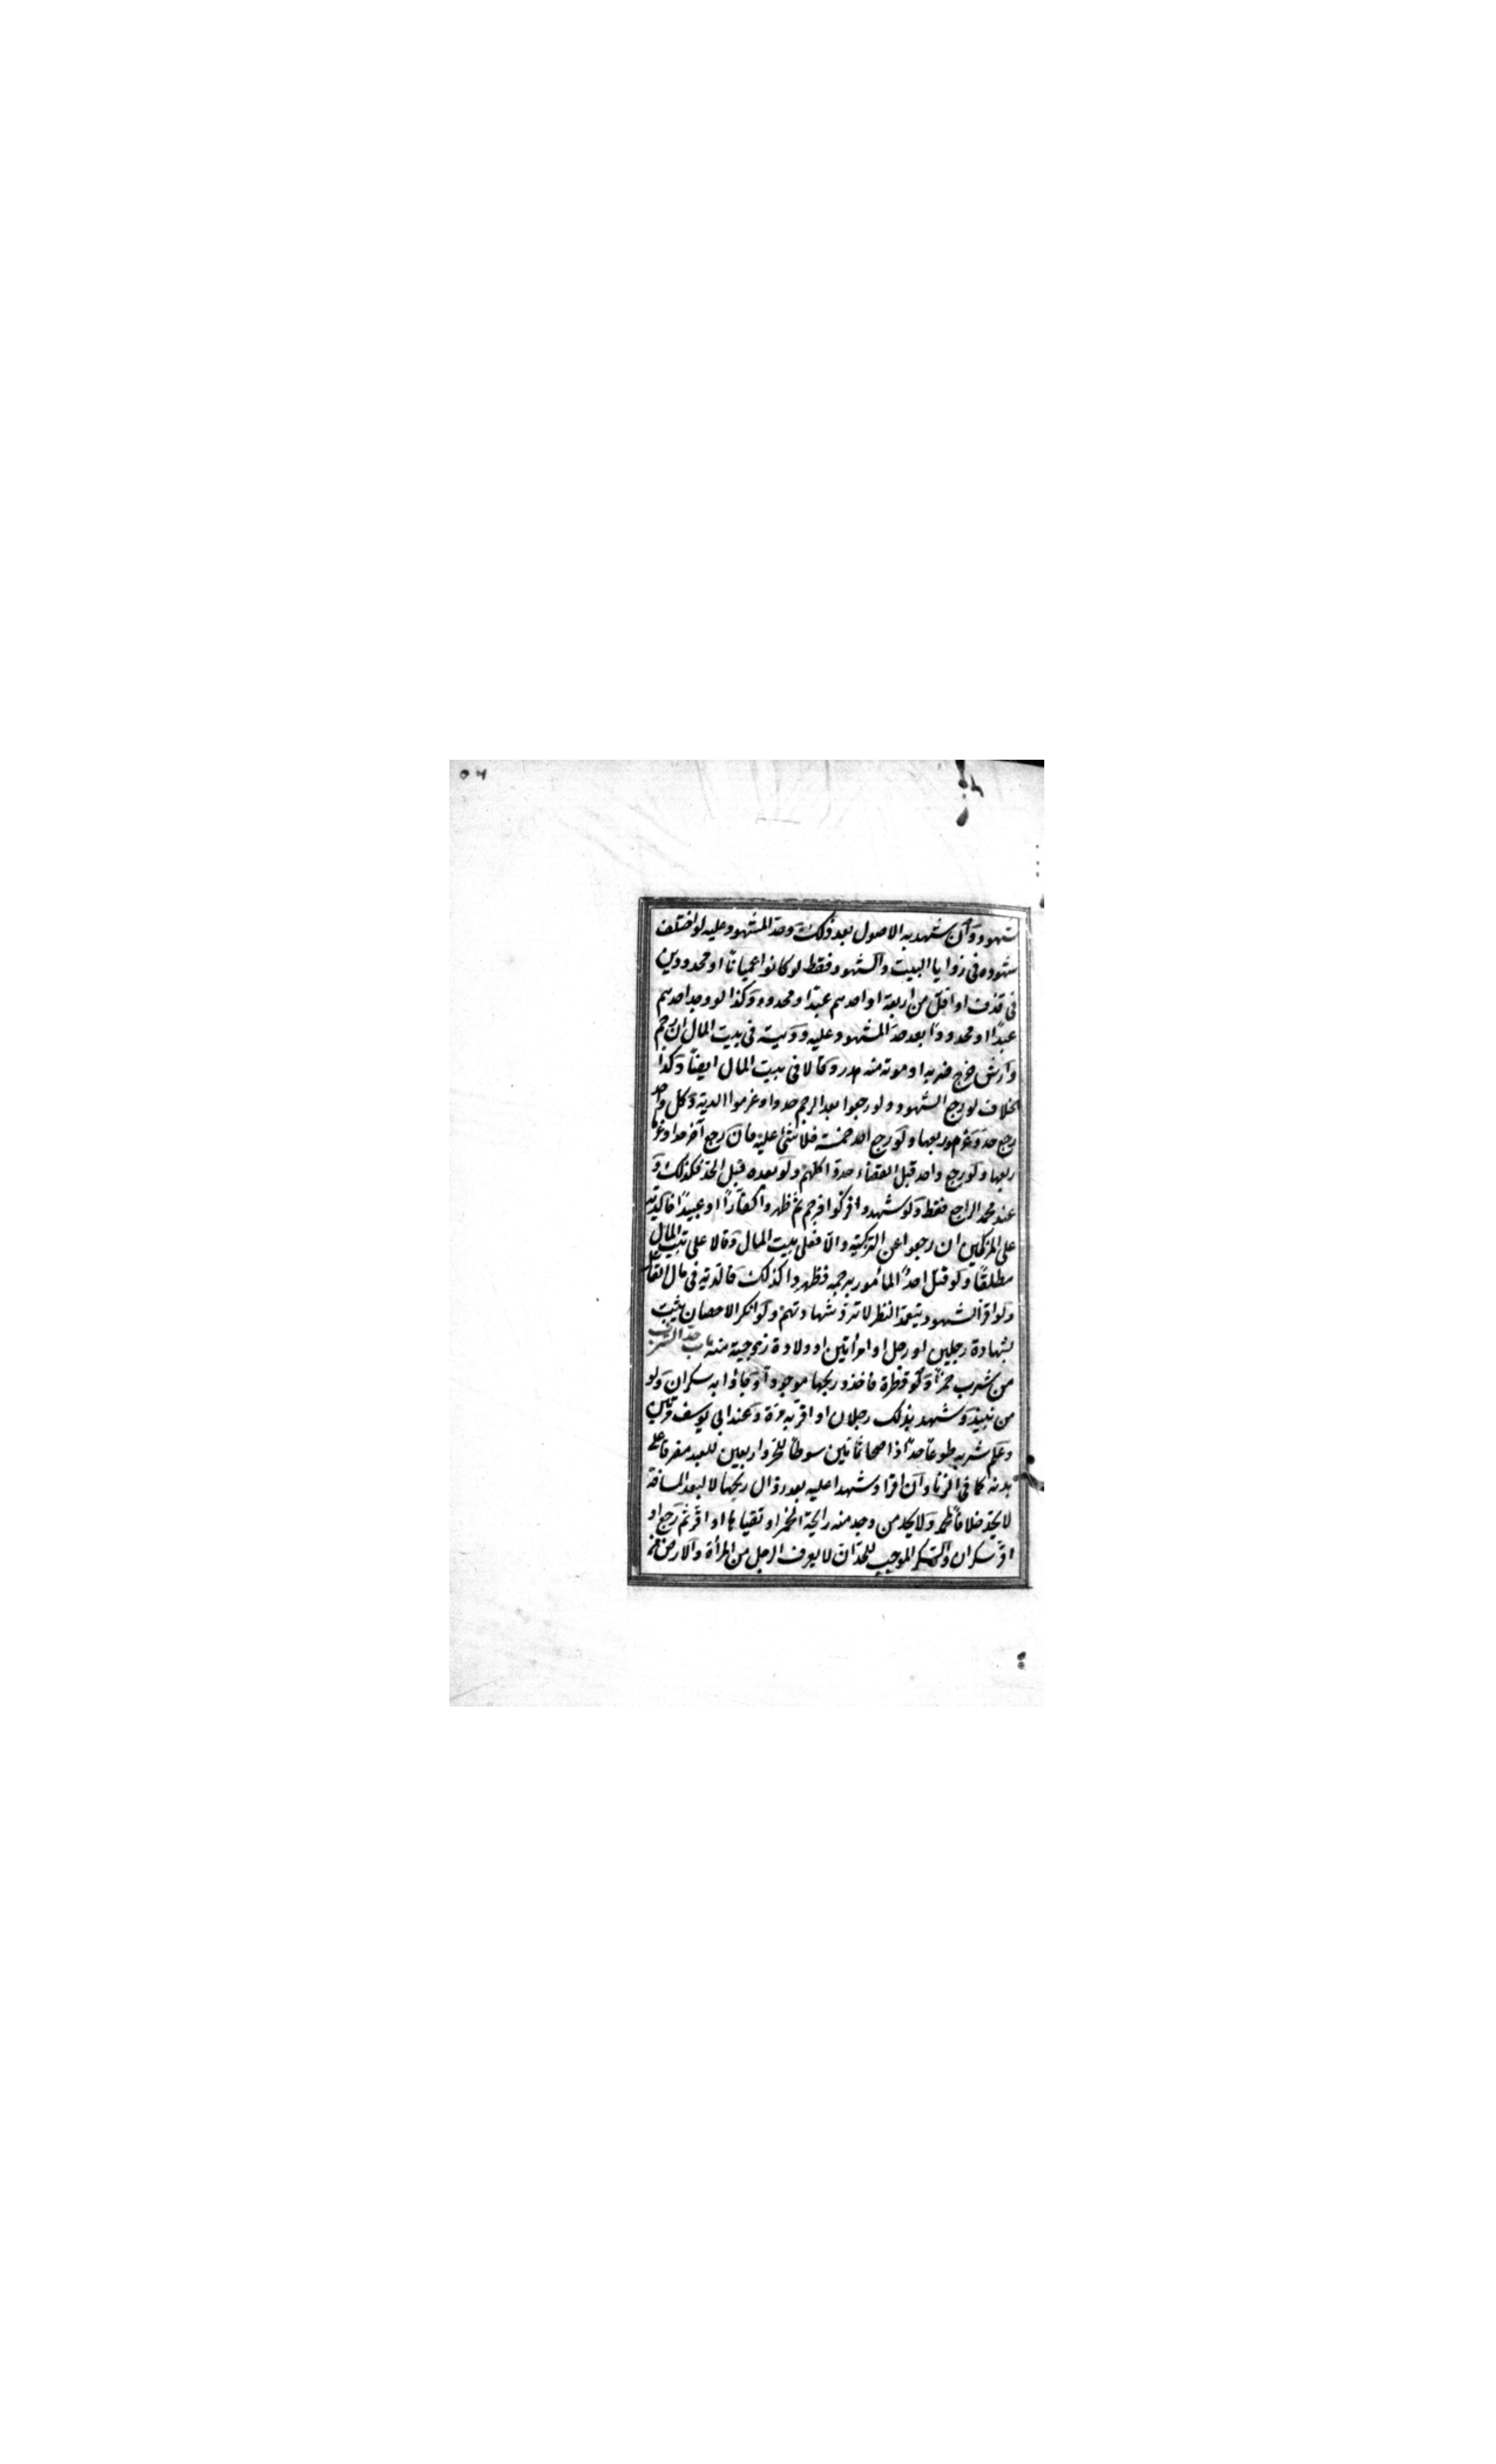 ٥٦
شهود وان شهد به الاصول بعد ذلك وحد المشهود عليه لو اختلف
شهوده فى زوايا البيت والشهود فقط لو كانوا عميانا او محدودين
فى قذف او اقل من اربعة او احدهم عبدا او محدود وكذا لو وجد احدهم
عبدا او محدودا بعد حد المشهود عليه وديته فى بيت المال ان رجم
وارش جرح ضربه او موته منه هدر وقالا فى بيت المال ايضا وكذا
الخلاف لو رجع الشهود ولو رجعوا بعد الرجم حدوا وغرموا الدية وكل واحد
رجع حد وغرم ربعها ولو رجع احد خمسة فلا شئ عليه فان رجع آخر حدا وغرما
ربعها ولو رجع واحد قبل القضاء حدوا كلهم ولو بعده قبل الحد فكذلك و
عند محمد الراجع فقط ولو شهدوا فزكوا فرجم ثم ظهروا كفارا او عبيدا فالدية
على المزكيين ان رجعوا عن التزكية والا فعلى بيت المال وقالا على بيت المال
مطلقا ولو قتل احد المأمور برجمه فظهروا كذلك فالدية فى مال القاتل
ولو اقر الشهود بتعمد النظر لا ترد شهادتهم ولو انكر الاحصان يثبت
بشهادة رجلين او رجل وامرأتين او ولادة زوجية منه باب حد الشرب
من شرب خمرا ولو قطرة فاخذ وريحها موجودا او جاؤا به سكران ولو
من نبيذ وشهد بذلك رجلان او اقر به مرة وعند ابى يوسف مرتين
وعلم شربه طوعا حد اذا صحا ثمانين سوطا للحر واربعين للعبد مفرقا على
بدنه كما فى الزنا وان اقر او شهدا عليه بعد زوال ريحها لا لبعد المسافة
لا يحد خلافا لمحمد ولا يحد من وجد منه رائحة الخمر او تقياها او اقر ثم رجع او
اقر سكران والسكر الموجب للحد ان لا يعرف الرجل من المرأة والارض من